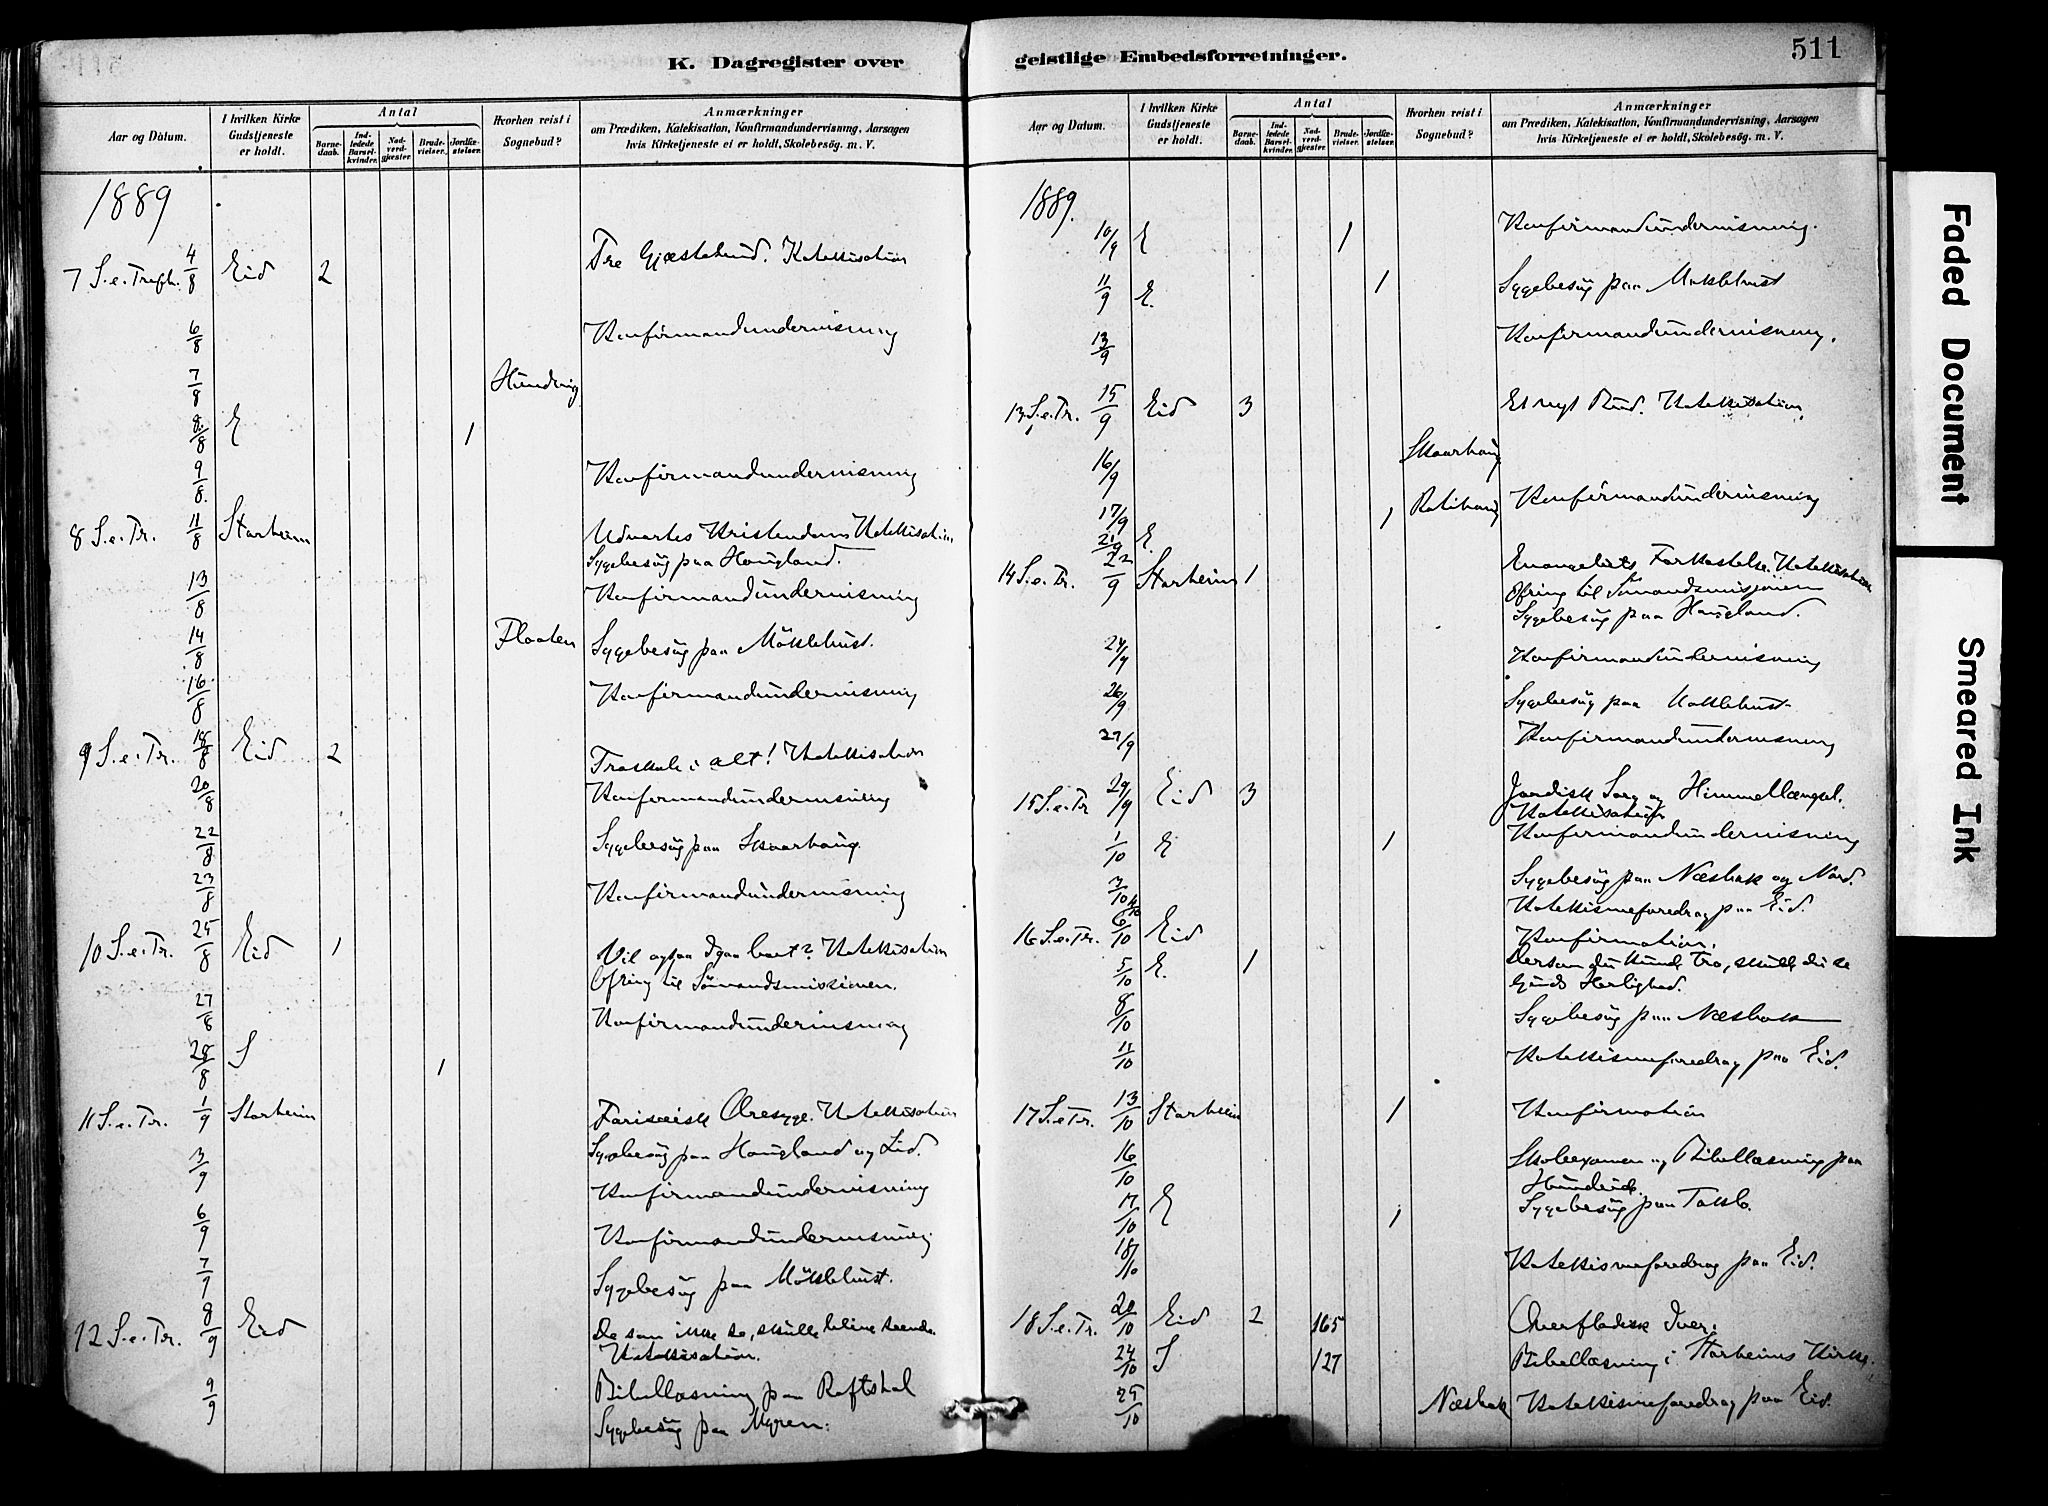 K. Dagregister over
Aar og Datum.
I hvilken Kirke Gudstjeneste er holdt.
Antal
Barne-daab.
Ind-ledede Barsel-kvinder.
Nad-verd-gjæster.
Brude-vielser.
Jordfæ-stelser.
Hvorhen reist i Sognebud?
Anmærkninger
om Prædiken, Katekisation, Konfirmandundervisning, Aarsagen
hvis Kirketjeneste ei er holdt, Skolebesøg. m. V.
1889
7 S. e. Trefh. 4/8 Eid 2 Tre Gjæstebud. Katekisation
6/8 Konfirmandundervisning
7/8 Hundvig
8/8 E 1
9/8 Konfirmandundervisning
8 S. e. Tr. 11/8 Starheim Udvortes Kristendom Katekisation
Sygebesøg paa Hougland.
13/8 Konfirmandundervisning
14/8 Flaaten Sygebesøg paa Möklebust.
16/8 Konfirmandundervisning
9 S. e. Tr. 18/8 Eid 2 Troskab i alt! Katekisation
20/8 Konfirmandundervisning
22/8 Sygebesøg paa Skaarhaug.
23/8 Konfirmandundervisning
10 S. e. Tr. 25/8 Eid 1 Vil ogsaa I gaa bort? Katekisation
Ofring til Sömandsmissionen.
27/8 Konfirmandundervisning
28/8 S 1
11 S. e. Tr. 1/9 Starheim Farisæisk Æresyge. Katekisation
Sygebesøg paa Hougland og Lid.
3/9 Konfirmandundervisning
6/9 Konfirmandundervisning
7/9 Sygebesøg paa Möklebust.
12 S. e. Tr. 8/9 Eid De som ikke se, skulle blive seende.
Katekisation.
9/9 Bibellæsning paa Raftshol
Sygebesøg paa Myren.
geistlige Embedsforretninger.
511
Aar og Datum.
I hvilken Kirke Gudstjeneste er holdt.
Antal
Barne-daab.
Ind-ledede Barsel-kvinder.
Nad-verd-gjæster.
Brude-vielser.
Jordfæ-stelser.
Hvorhen reist i Sognebud?
Anmærkninger
om Prædiken, Katekisation, Konfirmandundervisning, Aarsagen
hvis Kirketjeneste ei er holdt, Skolebesøg. m. V.
1889.
10/9 E 1 Konfirmandundervisning.
11/9 E. 1 Sygebesøg paa Möklebust
13/9 Konfirmandundervisning.
13 S. e. Tr. 15/9 Eid 3 Et nyt Bud. Katekisation.
16/9 Skaarhaug
17/9 1 Konfirmandundervisning
21/9 E.
14 S. e. Tr. 22/9 Starheim 1 Evangeliets Forkastelse. Katekisation
Ofring til Sömandsmissionen
Sygebesøg paa Hougland.
24/9 Konfirmandundervisning
26/9 Sygebesøg paa Möklebust
27/9 Konfirmandundervisning
15 S. e. Tr 29/9 Eid 3 Jordisk Sorg og Himmellængsel.
Katekisation
1/10 E 1 Konfirmandundervisning
3/10 Sygebesøg paa Næsbak og Nord.
4/10 Katekismeforedrag paa Eid.
16 S. e. Tr. 6/10 Eid Konfirmation.
5/10 E. 1 Dersom du kunde tro, skulde du se
Guds Herlighed.
8/10 Sygebesøg paa Næsbak
11/10 Katekismeforedrag paa Eid.
17 S. e. Tr. 13/10 Starheim 1 Konfirmation
16/10 Skoleexamen og Bibellæsning paa
17/10 E 1 Sygebesøg paa
18/10 Katekismeforedrag paa Eid.
18 S. e. Tr. 20/10 Eid 2 165 Overfladisk Iver.
24/10 S 127 Bibellæsning i Starheims Kirke.
25/10 Næsbak Katekismeforedrag paa Eid.
Faded Document
Smeared Ink